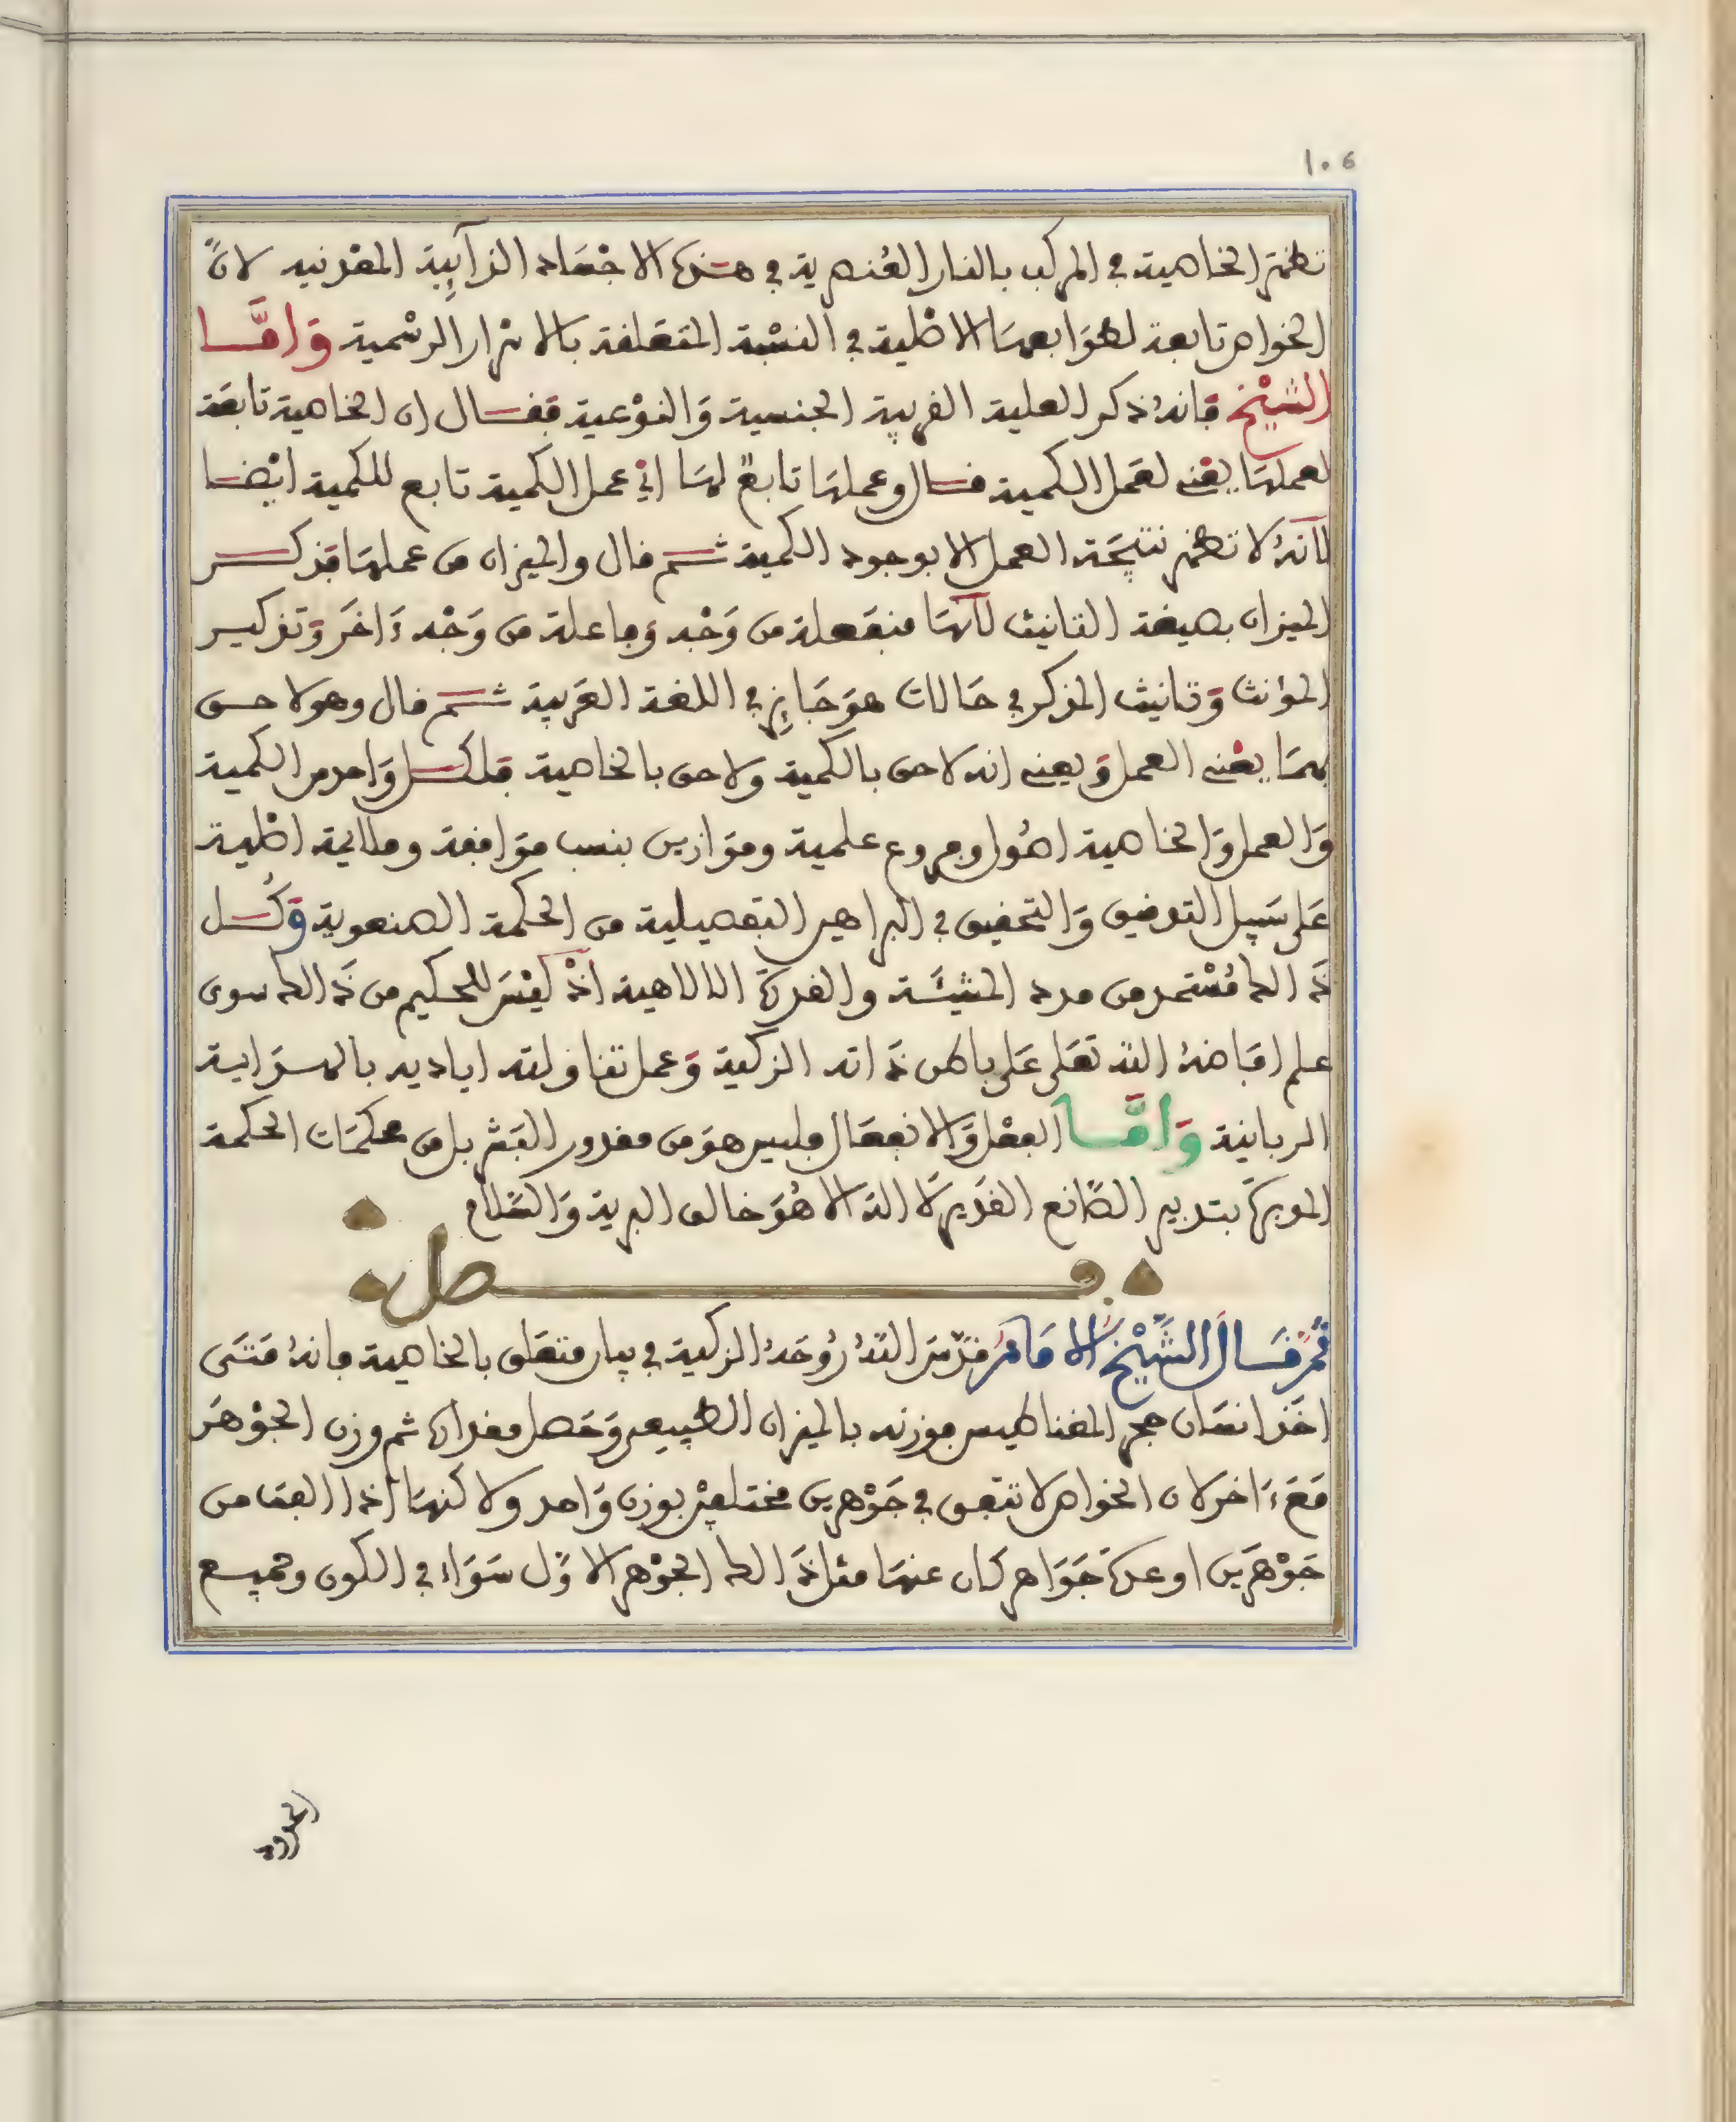 106
تظهر الخاصية في المركب بالنار العنصرية في هذه الاجساد الذآيبة المعدنيه لانّ
الخواص تابعة لطوابعها الاصلية في النسْبة المتعلقة بالاسرار الرسْمية وَامَّا
الشيْخ فانهُ ذكر العلية القريبة الجنسية وَالنوْعية فقال ان الخاصية تابعَة
لعملهَا يعْني لعَمل الكمية قال وعملهَا تابعٌ لهَا ايْ عمل الكمية تابع للكمية ايْضا
لأنهُ لا تظهر نتيجَة العمل الا بوجود الكمية ثم قال والميزان من عملهَا فذكر
الميزان بصيغة التانيث لأنهَا منفعلة من وَجْه وفاعلة من وَجْه ءَاخَر وَتذكير
المؤنث وَتانيث المذكر في حَالات هوَ جَايز في اللغة العَربية ثم قال وهو لاحق
بهمَا يعْني العمل وَيعني انه لاحق بالكمية ولاحق بالخاصية فلكل وَاحد من الكمية
وَالعمل وَالخاصية اصُول وفروع علمية وموَازين بنسب موَافقة وملايمة اصْلية
عَلى سَبيل التوفيق وَالتحقيق في البراهين التفصيلية من الحكمة الصنعوية وَكُل
ذَالك مُسْتمد من مدد المشيئَة والقدرَة الالاهية اذْ ليْسَ للحكيم من ذَالك سوى
علم افاضهُ الله تعَلى عَلى باطن ذَاته الزكية وَعمل تناولته اياديه بالهدَاية
الربانية وَامَّا الفعْل وَالانفعَال فليس هوَ من مقدور البَشر بل من محكمَات الحكمة
المدبرَة بتدبير الصَّانع القدير لَا اله الا هُوَ خالق البرية وَالسَّلام
فصل
ثُمَّ قَالَ الشَّيْخُ الامَامُ قدّسَ اللهُ رُوحَهُ الزكية في بيان متعَلق بالخاصية فانهُ مَتَى
اخَذ انسَان حجر المغناطيس فوزنه بالميزان الطبيعي وَحَصل مقدارَه ثم وزن الجوْهَر
مَعَ ءَاخر لان الخواص لا تتفق في جَوْهرين مختلفيْن بوزن وَاحد ولاكنهَا اذا القت من
جَوْهَرين او عدة جَوَاهر كان عنهَا مثل ذَالك الجوْهر الاوَّل سَوَاء في الكون وجميع
الحدود